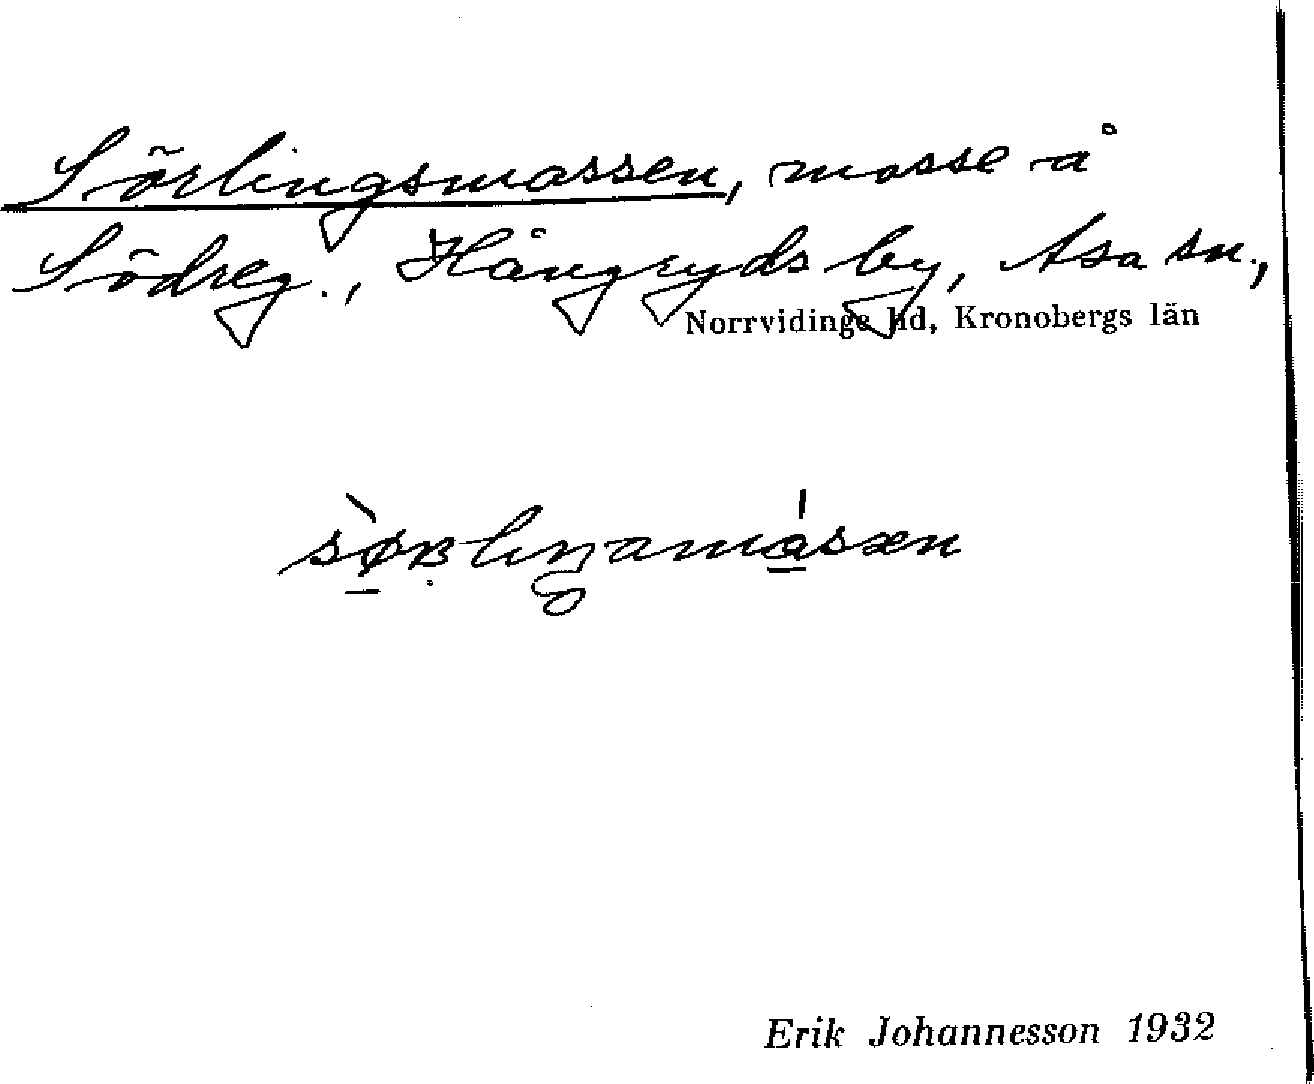 Sörlingsmossen, mosse å
Södreg., Hångryds by, Asa sn.,
Norrvidinge hd, Kronobergs län
Erik Johannesson 1932